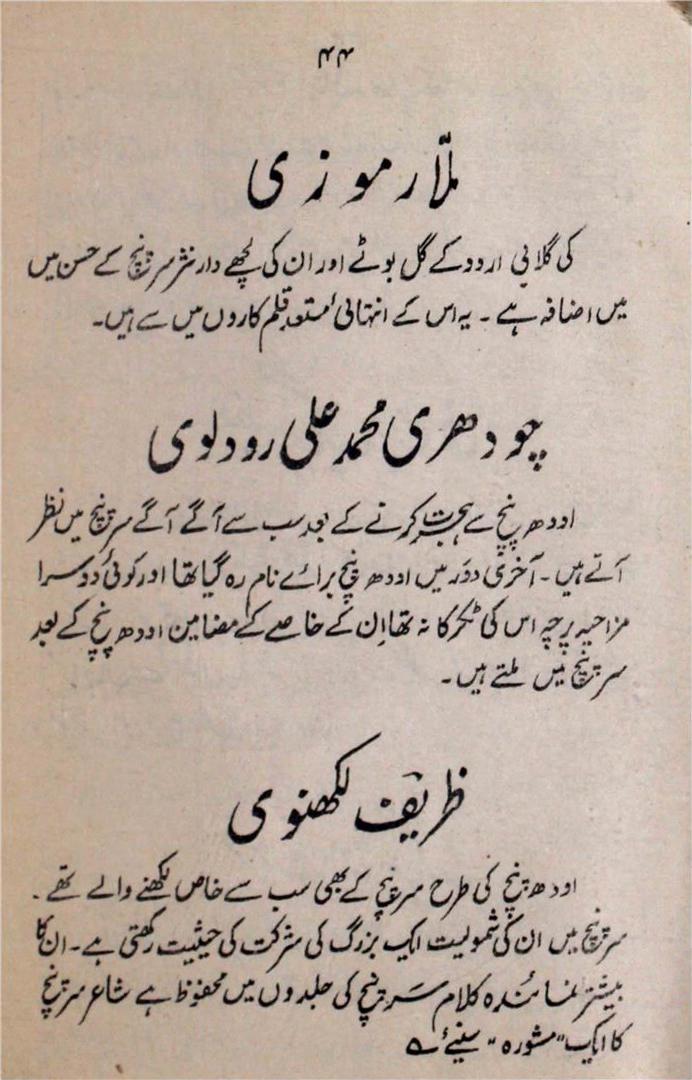 ۴۴
ملّا رموزی
کی گلابی اردو کے گل بوٹے اور ان کی لچھے دار نثر سر پنچ کے حسن میں
میں اضافہ ہے ۔ یہ اس کے انتہائی مستعد قلم کاروں میں سے ہیں۔
چودھری محمد علی رودلوی
اودھ پنچ سے ہجرت کرنے کے بعد سب سے آگے آگے سر پنچ میں نظر
آتے ہیں ۔ آخری دَور میں اودھ پنچ برائے نام رہ گیا تھا اور کوئی دوسرا
مزاحیہ پرچہ اس کی ٹکر کا نہ تھا اِن کے خاصے کے مضامین اودھ پنچ کے بعد
سر پنچ میں ملتے ہیں ۔
ظریف لکھنوی
اودھ پنچ کی طرح سر پنچ کے بھی سب سے خاص لکھنے والے تھے ۔
سر پنچ میں ان کی شمولیت ایک بزرگ کی شرکت کی حیثیت رکھتی ہے ۔ ان کا
بیشتر نمائندہ کلام سر پنچ کی جلدوں میں محفوظ ہے شاعر سر پنچ
کا ایک "مشورہ" سنیے ؎